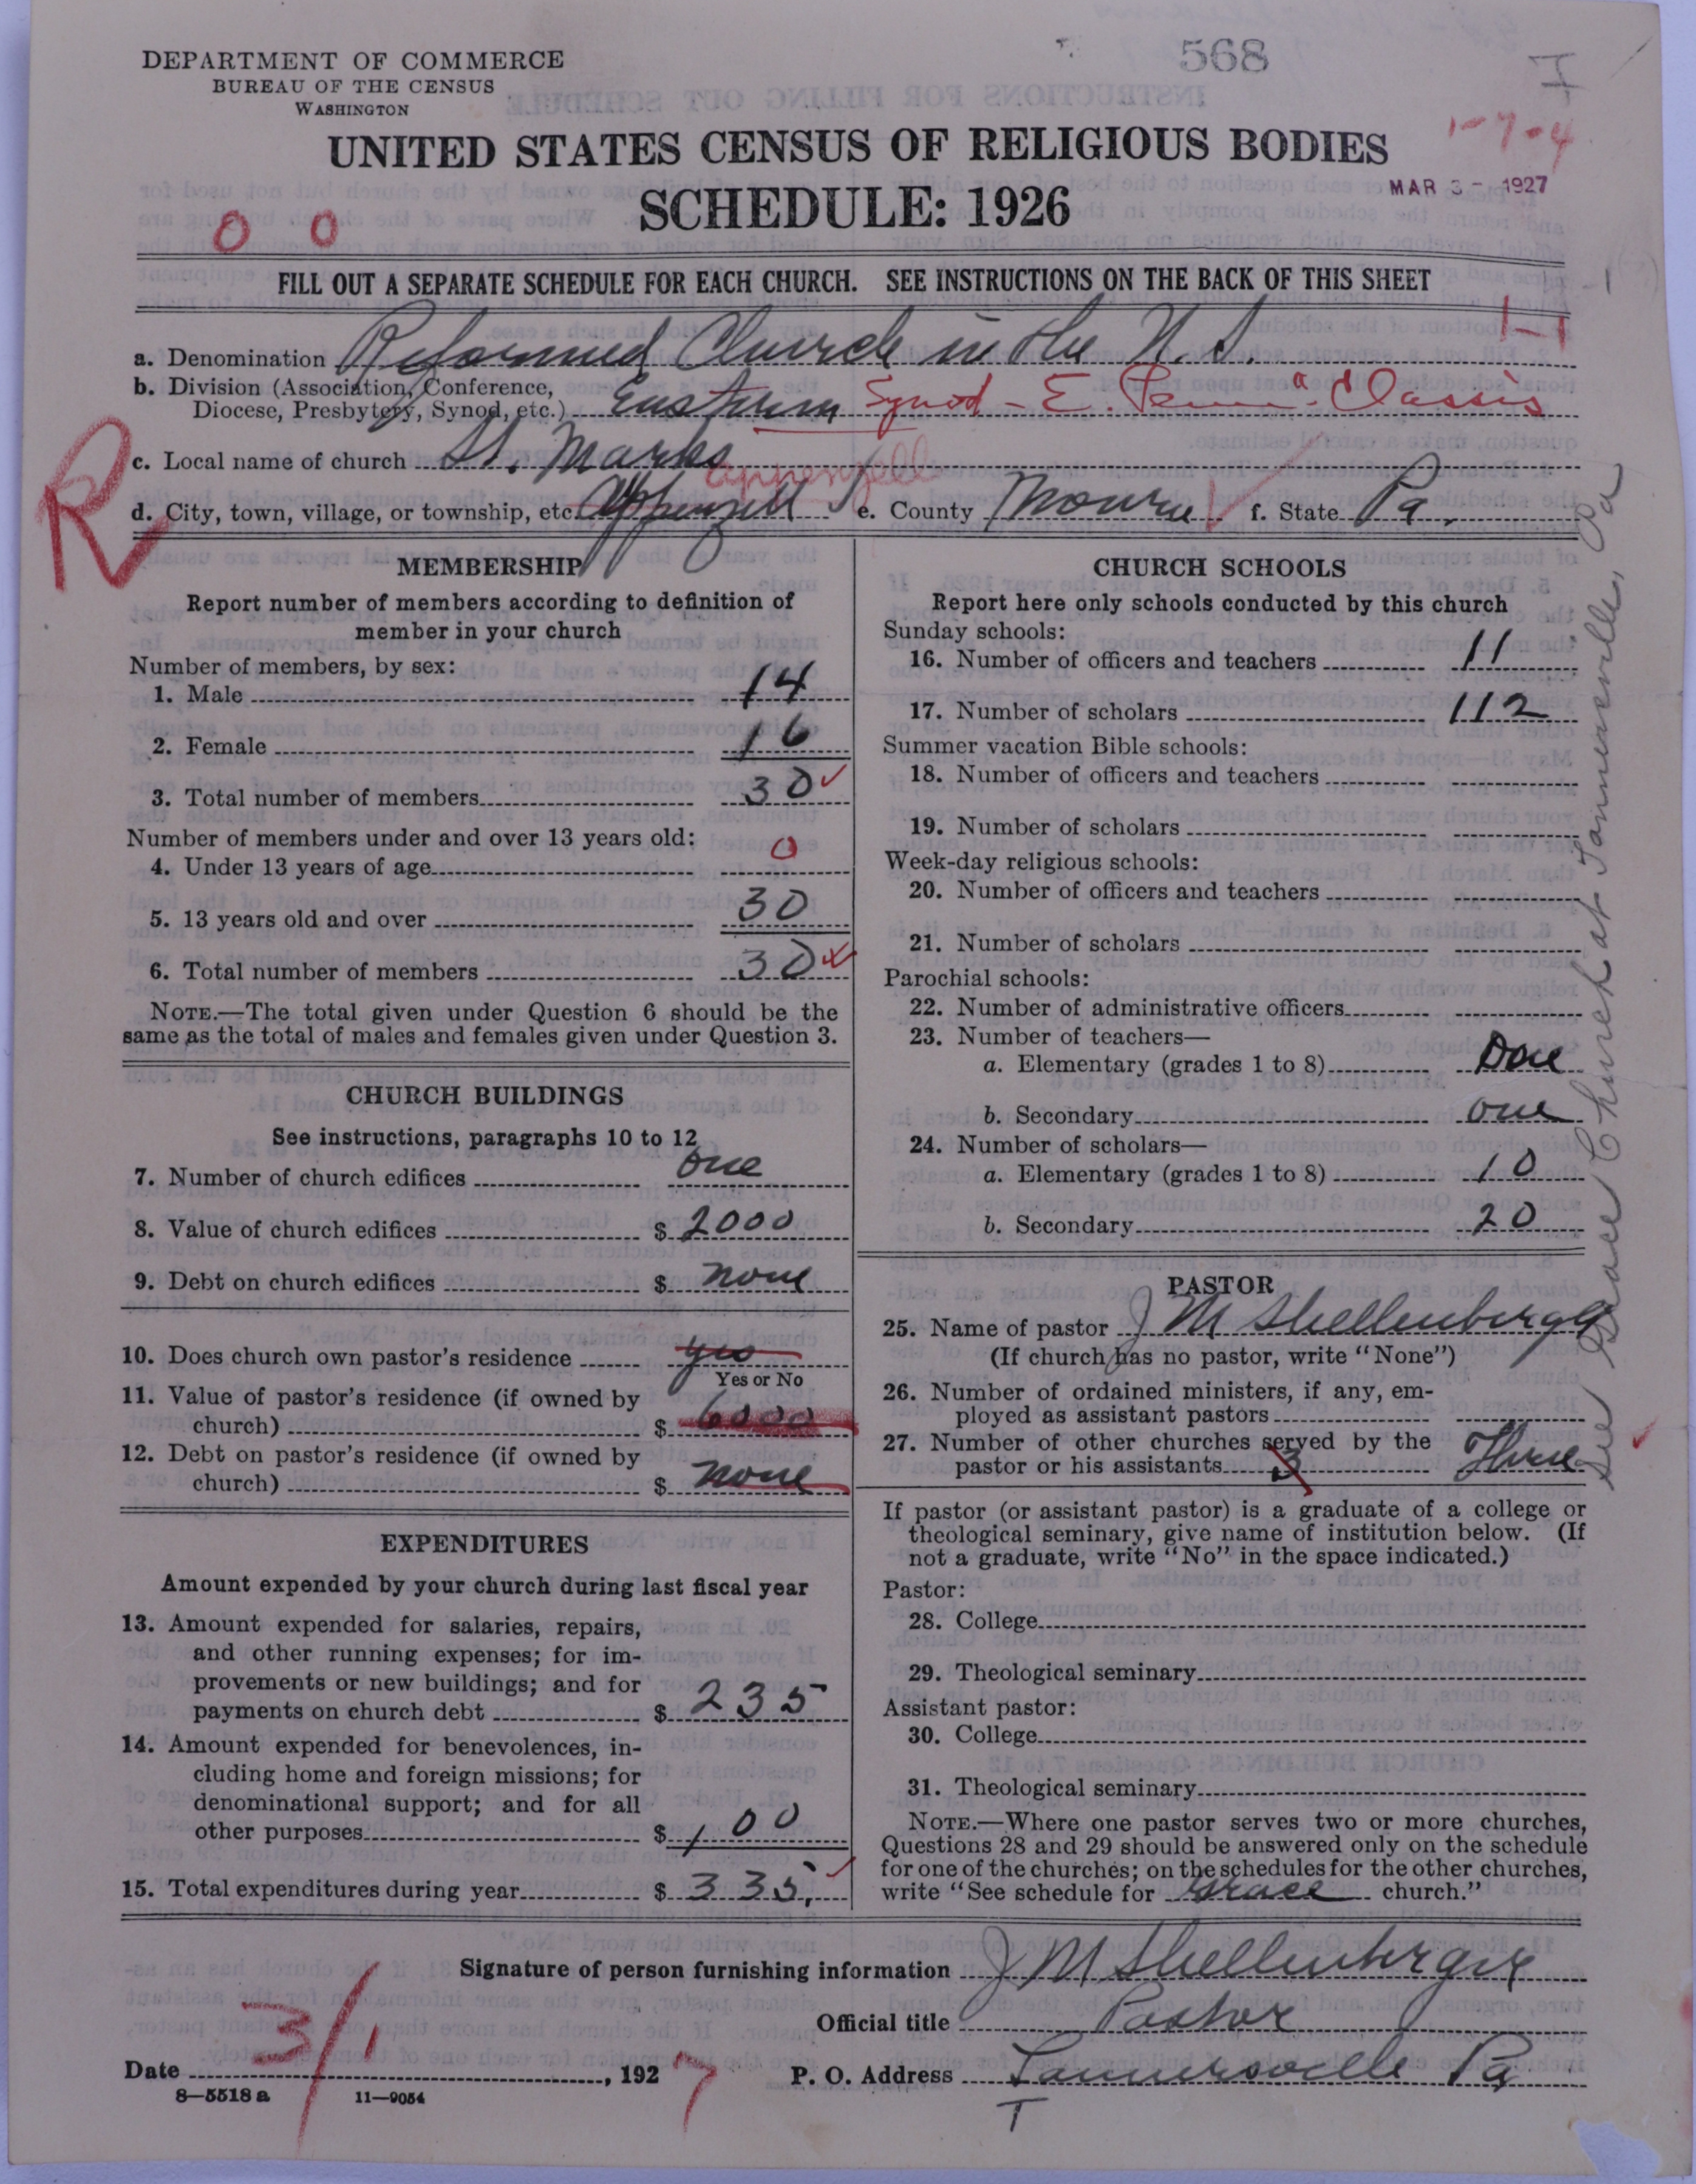 DEPARTMENT OF COMMERCE
BUREAU OF THE CENSUS
WASHINGTON
568
I
UNITED STATES CENSUS OF RELIGIOUS BODIES
1-7-4
SCHEDULE: 1926
MAR 3 - 1927
0 0
FILL OUT A SEPARATE SCHEDULE FOR EACH CHURCH. SEE INSTRUCTIONS ON THE BACK OF THIS SHEET
1-1
a. Denomination Reformed Church in the U.S.
b. Division (Association, Conference,
Diocese, Presbytery, Synod, etc.) Eastern Synod - E. Penn'a Classis
R
c. Local name of church St. Marks
appenzell
d. City, town, village, or township, etc. Appenzell e. County Monroe f. State Pa.
MEMBERSHIP
Report number of members according to definition of
member in your church
Number of members, by sex:
1. Male 14
2. Female 16
3. Total number of members 30
Number of members under and over 13 years old:
4. Under 13 years of age 0
5. 13 years old and over 30
6. Total number of members 30
NOTE.—The total given under Question 6 should be the
same as the total of males and females given under Question 3.
CHURCH BUILDINGS
See instructions, paragraphs 10 to 12
7. Number of church edifices one
8. Value of church edifices $ 2000
9. Debt on church edifices $ none
10. Does church own pastor's residence yes
Yes or No
11. Value of pastor's residence (if owned by
church) $ 6000
12. Debt on pastor's residence (if owned by
church) $ none
EXPENDITURES
Amount expended by your church during last fiscal year
13. Amount expended for salaries, repairs,
and other running expenses; for im-
provements or new buildings; and for
payments on church debt $ 235
14. Amount expended for benevolences, in-
cluding home and foreign missions; for
denominational support; and for all
other purposes $ 100
15. Total expenditures during year $ 335,
CHURCH SCHOOLS
Report here only schools conducted by this church
Sunday schools:
16. Number of officers and teachers 11
17. Number of scholars 112
Summer vacation Bible schools:
18. Number of officers and teachers
19. Number of scholars
Week-day religious schools:
20. Number of officers and teachers
21. Number of scholars
Parochial schools:
22. Number of administrative officers
23. Number of teachers—
a. Elementary (grades 1 to 8) One
b. Secondary one
24. Number of scholars—
a. Elementary (grades 1 to 8) 10
b. Secondary 20
PASTOR
25. Name of pastor J M Shellenberger
(If church has no pastor, write "None")
26. Number of ordained ministers, if any, em-
ployed as assistant pastors
27. Number of other churches served by the
pastor or his assistants 3 Three
If pastor (or assistant pastor) is a graduate of a college or
theological seminary, give name of institution below. (If
not a graduate, write "No" in the space indicated.)
Pastor:
28. College
29. Theological seminary
Assistant pastor:
30. College
31. Theological seminary
NOTE.—Where one pastor serves two or more churches,
Questions 28 and 29 should be answered only on the schedule
for one of the churches; on the schedules for the other churches,
write "See schedule for Grace church."
See Grace Church at Tannersville, Pa
Signature of person furnishing information J M Shellenberger
Official title Pastor
Date 3/1, 1927 P. O. Address Tannersville Pa
T
8—5518 a 11—9054